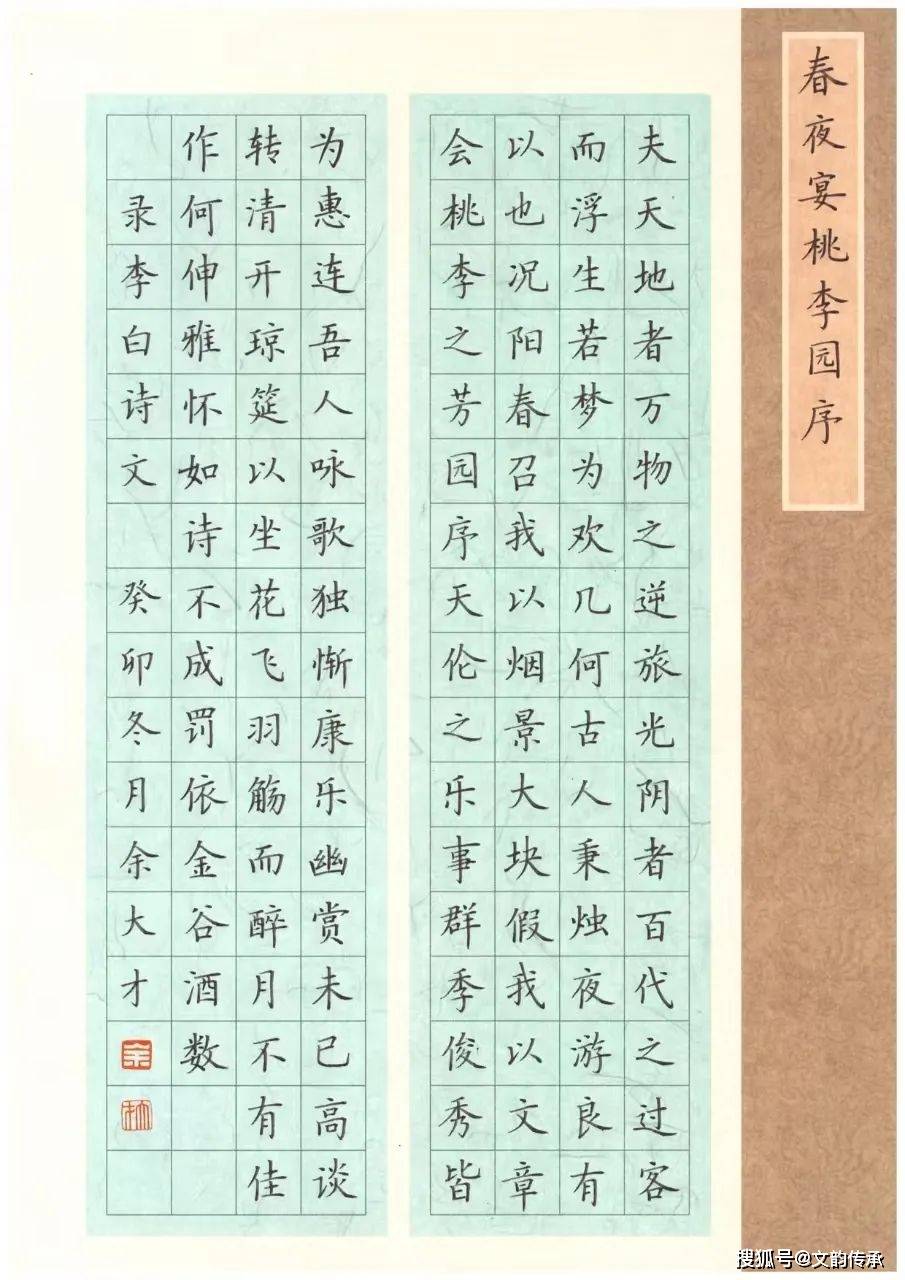 春夜宴桃李园序
夫天地者万物之逆旅光阴者百代之过客
而浮生若梦为欢几何古人秉烛夜游良有
以也况阳春召我以烟景大块假我以文章
会桃李之芳园序天伦之乐事群季俊秀皆
为惠连吾人咏歌独惭康乐幽赏未已高谈
转清开琼筵以坐花飞羽觞而醉月不有佳
作何伸雅怀如诗不成罚依金谷酒数
录李白诗文 癸卯冬月余大才
搜狐号@文韵传承